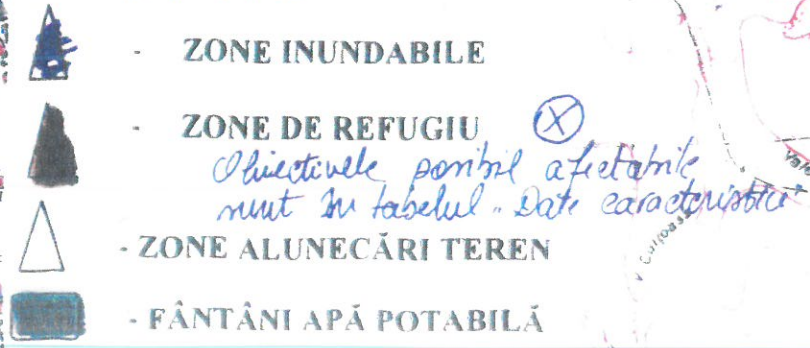 - ZONE INUNDABILE
- ZONE DE REFUGIU X
Obiectivele posibil afectabile
sunt în tabelul "Date caracteristice
- ZONE ALUNECĂRI TEREN
- FÂNTÂNI APĂ POTABILĂ